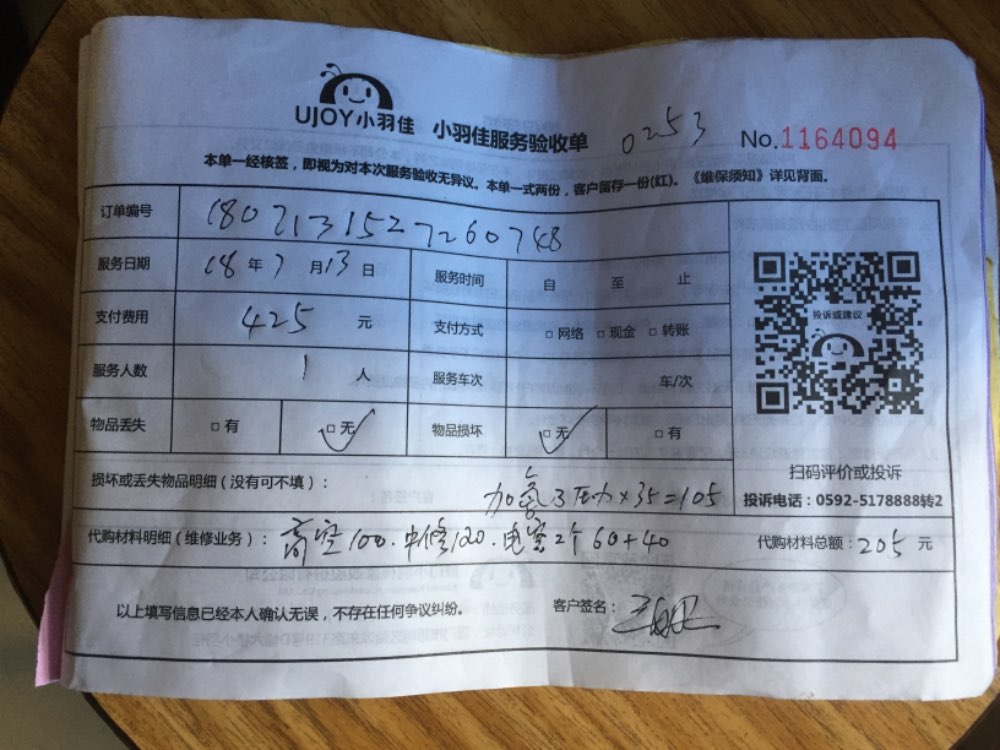 UJOY小羽佳 小羽佳服务验收单 0253 No.1164094
本单一经核签，即视为对本次服务验收无异议。本单一式两份，客户留存一份(红)。《维保须知》详见背面。
订单编号 1807131527260748
服务日期 18年7月13日 服务时间 自 至 止
支付费用 425 元 支付方式 □网络 □现金 □转账
服务人数 1 人 服务车次 车/次
物品丢失 □有 □无 物品损坏 □无 □有
投诉或建议
扫码评价或投诉
投诉电话：0592-5178888转2
损坏或丢失物品明细（没有可不填）：
加氟3压力×35=105
代购材料明细（维修业务）：高空100.中修120.电容2个60+40 代购材料总额：205 元
以上填写信息已经本人确认无误，不存在任何争议纠纷。 客户签名：